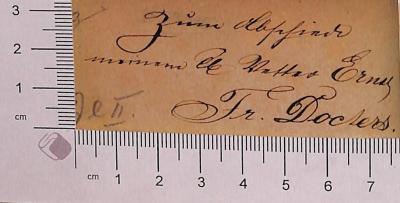 Zum Abschiede
meinem lb Vetter Ernst
Fr. Docters.
II.
3
2
1
cm
cm 1 2 3 4 5 6 7